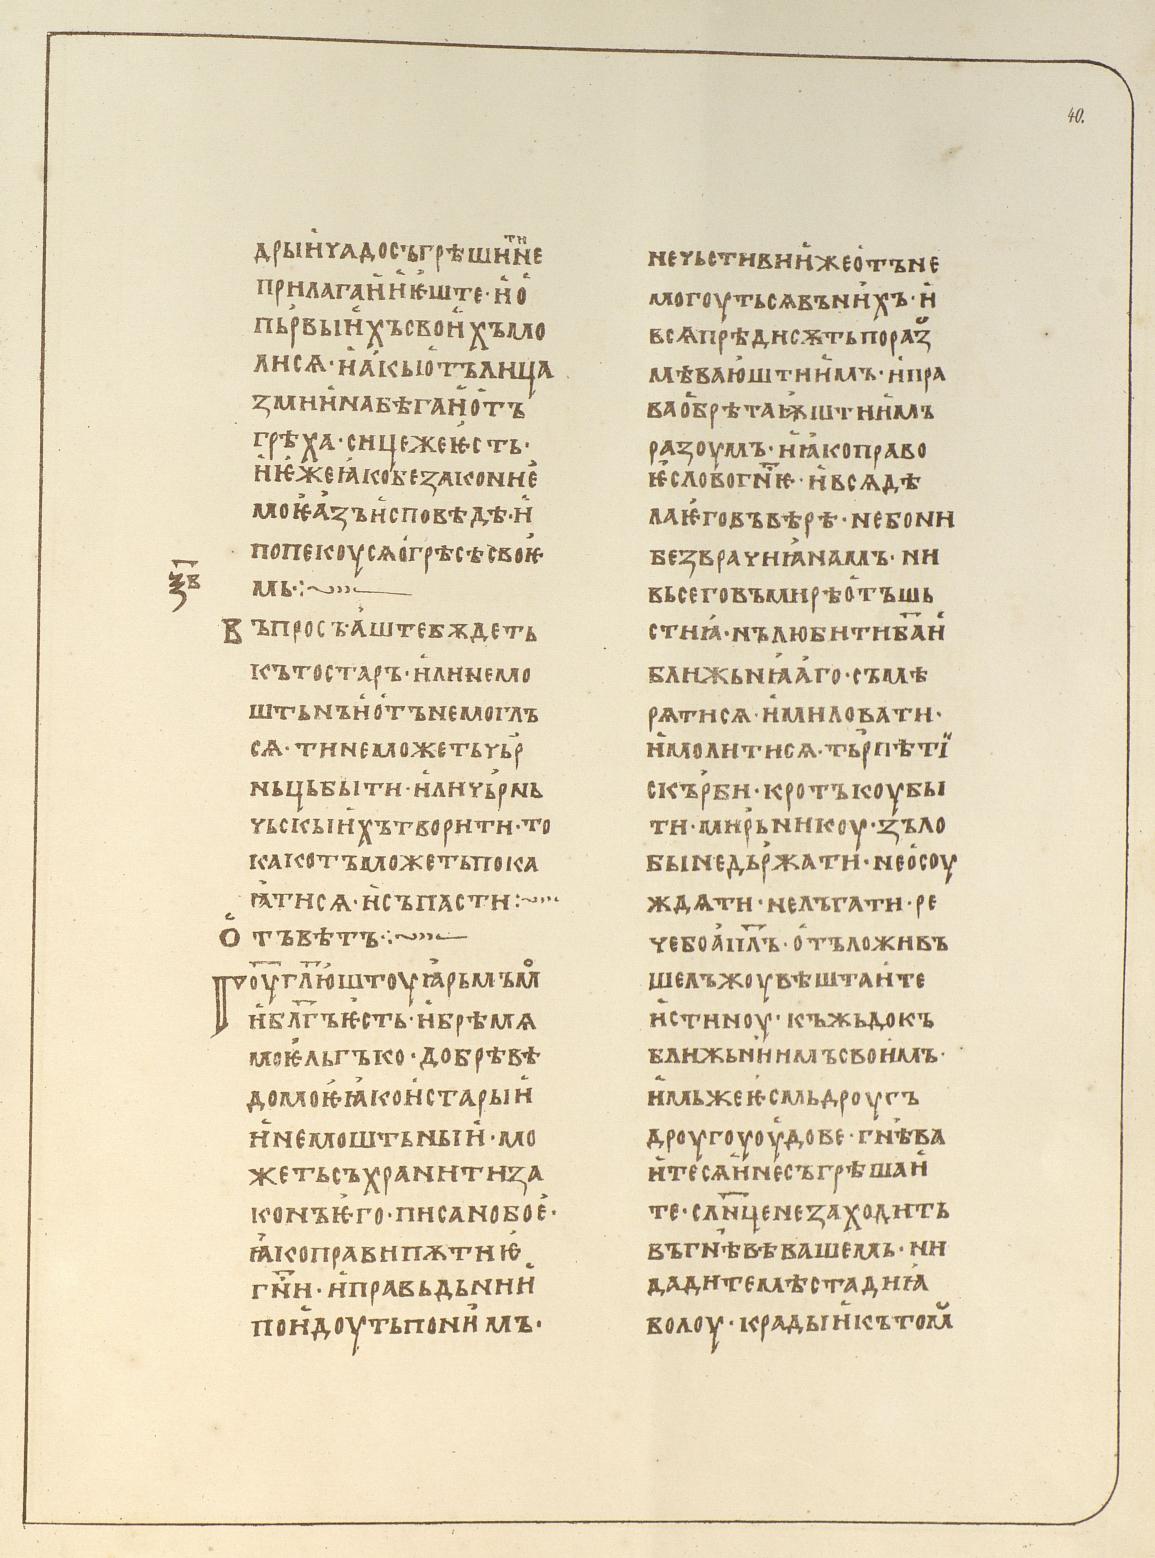 40.
дрꙑи҆чадосъгрѣшинтине
прилагаи҆и҆ѥ҆ште·и҆о҆
пьрвꙑи҆хъсвои҆хъмо
лисѧ·и҆а҆кꙑотълица
ꙁмиинабѣгаи҆о҆тъ
грѣха·сицежеѥ҆сть·
и҆ѥ҆жеꙗ҆кобеꙁакониѥ҆
моѥ҆а҆ꙁъи҆сповѣдѣ·и҆
попекоусѧо҆грѣсѣсвоѥ҆
мь·:~
ꙁ҃в
Въпросъ·а҆штебѫдеть
къто старъ·и҆линемо
штьнъи҆о҆тънемогъ
сѧ·тинеможетьчьр
ньцьбꙑти·и҆личьрнь
чьскꙑи҆хътворити·то
какотъможетьпока
ꙗ҆тисѧ·и҆съпасти:~
О҆тъвѣтъ·:~
Гоу҃гл҃ю҆штоуꙗ҆рьмъмо
и҆бл҃гъѥ҆сть·и҆брѣмѧ
моѥ҆льгъко·добрѣвѣ
домоѥ҆ꙗ҆кои҆старꙑи҆
и҆немоштьнꙑи҆·мо
жетьсъхранитиꙁа
конъѥ҆го·писанобое҆·
ꙗ҆коправипѫтиѥ҆
гн҃и·и҆правьдьнии҆
пои҆доутьпони҆мъ·
нечьстивии҆жео҆тъне
могоутьсѧвъни҆хъ·и҆
всѧпрѣдисѫтьпораꙁ
мѣваю҆штии҆мъ·и҆пра
вао҆брѣтаѭ҆штиимъ
раꙁоумъ·и҆ꙗ҆коправо
ѥ҆словогн҃ѥ·и҆всѧдѣ
лаѥ҆говъвѣрѣ·небони
беꙁврачиꙗ҆намъ·ни
вьсеговъмирѣо҆тъшь
стиꙗ҆·нълюбитиб҃аи҆
ближьнꙗ҆а҆го·съмѣ
рѧтисѧ·и҆миловати·
и҆молитисѧ·тьрпѣті
скърби·кротъкоубꙑ
ти·мирьникоу·ꙁъло
бꙑнедьржати·нео҆соу
ждѧти·нелъгати·ре
чебоа҆пл҃ъ·о҆тъложивъ
шелъжоувѣштаи҆те
и҆стиноу·къждокъ
ближьнии҆мъсвои҆мъ·
и҆мьжеѥ҆смьдроугъ
дроугоуоу҆добе·гнѣва
и҆тесѧи҆несъгрѣшаи҆
те·слн҃ценеꙁаходить
въгнѣвѣвашемь·ни
дадитемѣстадиꙗ҆
волоу·крадꙑи҆къ том